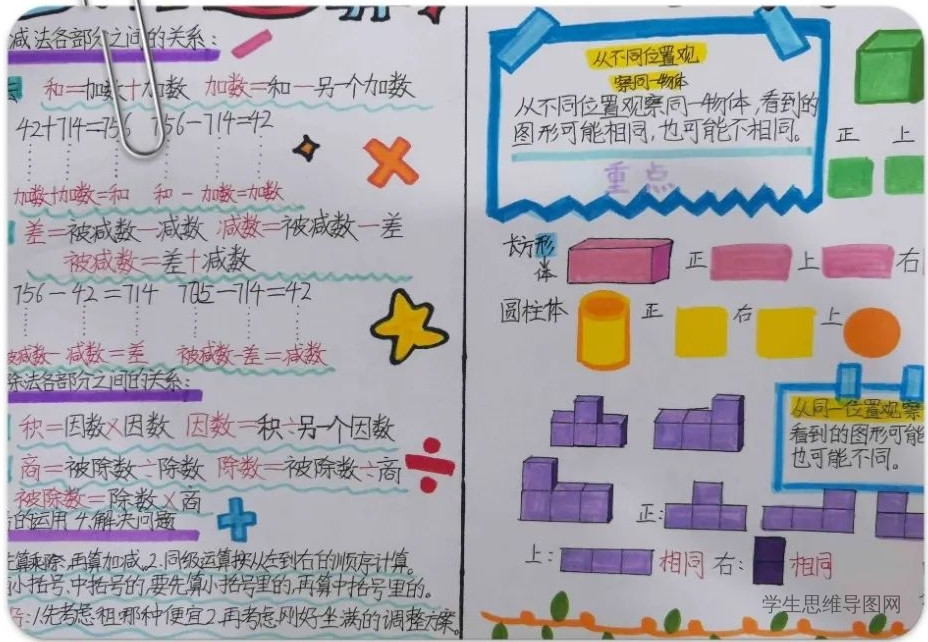 减法各部分之间的关系:
和=加数+加数 加数=和-另一个加数
42+714=756 756-714=42
加数+加数=和 和-加数=加数
差=被减数-减数 减数=被减数-差
被减数=差+减数
756-42=714 705-714=42
被减数-减数=差 被减数-差=减数
除法各部分之间的关系:
积=因数×因数 因数=积÷另一个因数
商=被除数÷除数 除数=被除数÷商
被除数=除数×商
的运用 4.解决问题
算乘除,再算加减。2.同级运算按从左到右的顺序计算。
小括号,中括号的,要先算小括号里的,再算中括号里的。
1.先考虑租哪种便宜2.再考虑刚好坐满的调整方案。
从不同位置观
察同一物体
从不同位置观察同一物体,看到的
图形可能相同,也可能不相同。
重点
正 上
长方形
体
正 上 右
圆柱体 正 右 上
从同一位置观察
看到的图形可能
也可能不同。
正:
上: 相同 右: 相同
学生思维导图网